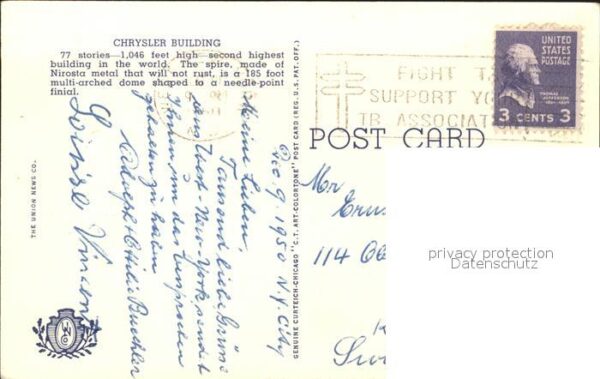 CHRYSLER BUILDING
77 stories—1,046 feet high—second highest
building in the world. The spire, made of
Nirosta metal that will not rust, is a 185 foot
multi-arched dome shaped to a needle-point
finial.
THE UNION NEWS CO.
UNCO
Dec. 9, 1950 N.Y. City
Meine Lieben,
Tausend liebe Grüsse
aus West-New-York sendet
Ihnen um das Versprochen
zu haben
Adolph & Ottilie Buechler
Louise
GENUINE CURTEICH-CHICAGO "C.T. ART-COLORTONE" POST CARD (REG. U.S. PAT. OFF.)
FIGHT T
SUPPORT YO
TB ASSOCIAT
UNITED
STATES
POSTAGE
THOMAS
JEFFERSON
3 CENTS 3
POST CARD
Mr
114
privacy protection
Datenschutz